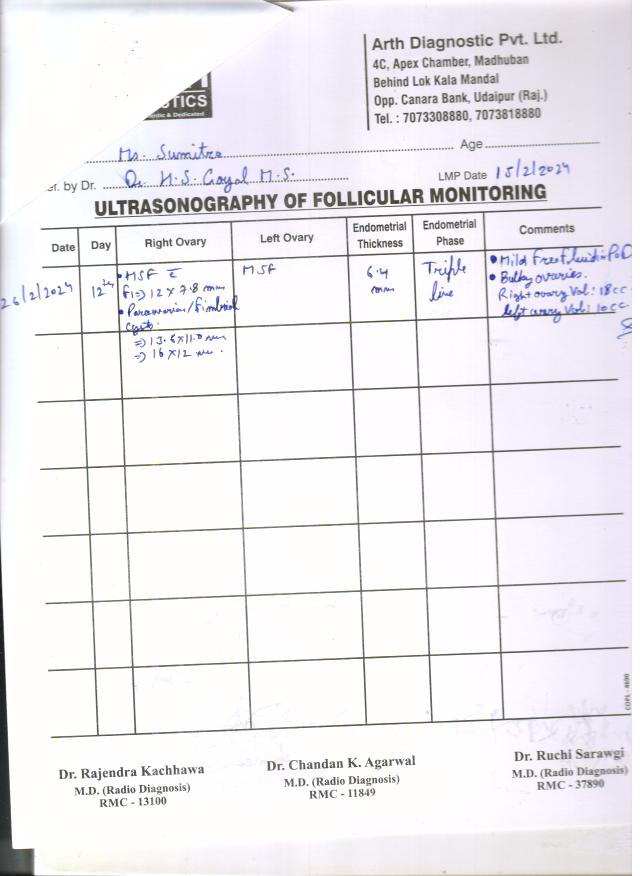 STICS
ntic & Dedicated
Arth Diagnostic Pvt. Ltd.
4C, Apex Chamber, Madhuban
Behind Lok Kala Mandal
Opp. Canara Bank, Udaipur (Raj.)
Tel. : 7073308880, 7073818880
Ms. Sumitra Age
er. by Dr. Dr. H.S. Goyal M.S. LMP Date 15/2/2024
ULTRASONOGRAPHY OF FOLLICULAR MONITORING
Date Day Right Ovary Left Ovary Endometrial Thickness Endometrial Phase Comments
26/2/2024 12
• MSF c̄
F1 => 12 x 7.8 mm
• Paraovarian/fimbrial
cysts.
=> 13.6x11.0 mm
=> 16x12 mm.
MSF
6.4
mm
Triple
line
• Mild Free fluid in PoD
• Bulky ovaries.
Right ovary Vol: 18cc.
left ovary Vol: 10cc
COPL - 4690
Dr. Rajendra Kachhawa
M.D. (Radio Diagnosis)
RMC - 13100
Dr. Chandan K. Agarwal
M.D. (Radio Diagnosis)
RMC - 11849
Dr. Ruchi Sarawgi
M.D. (Radio Diagnosis)
RMC - 37890